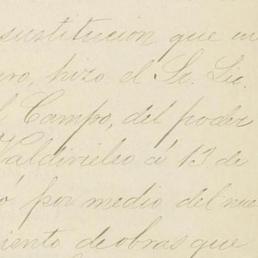 sustitucion que en
ro, hizo el Sr. Lic.
Campo, del poder
Valdivielso á 13 de
ó por medio del nue
iento de obras que